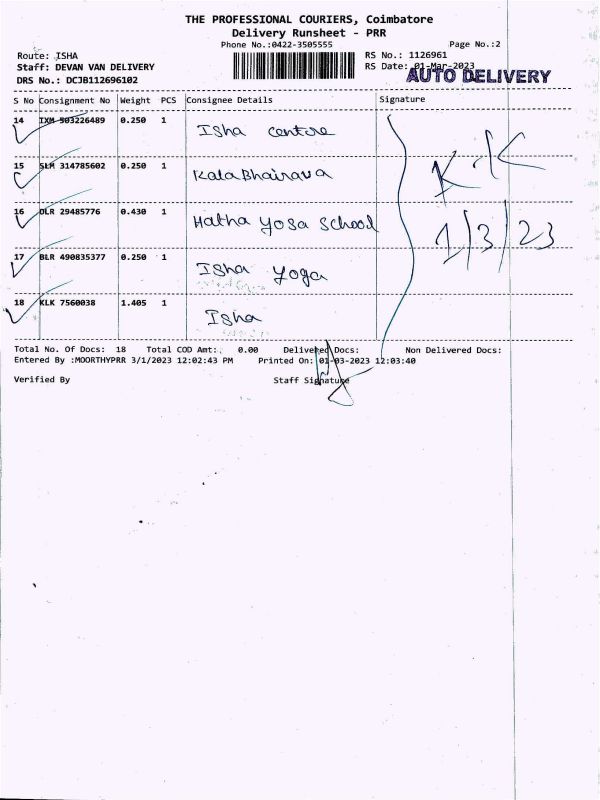 THE PROFESSIONAL COURIERS, Coimbatore
Delivery Runsheet - PRR
Phone No.:0422-3505555 Page No.:2
Route: ISHA RS No.: 1126961
Staff: DEVAN VAN DELIVERY RS Date: 01-Mar-2023
AUTO DELIVERY
DRS No.: DCJB112696102
S No Consignment No Weight PCS Consignee Details Signature
14 IXM 503226489 0.250 1 Isha centre
15 SLM 314785602 0.250 1 KalaBhairava
K.K
16 DLR 29485776 0.430 1 Hatha yoga school
1/3/23
17 BLR 490835377 0.250 1 Isha yoga
18 KLK 7560038 1.405 1 Isha
Total No. Of Docs: 18 Total COD Amt: 0.00 Delivered Docs: Non Delivered Docs:
Entered By :MOORTHYPRR 3/1/2023 12:02:43 PM Printed On: 01-03-2023 12:03:40
Verified By Staff Signature